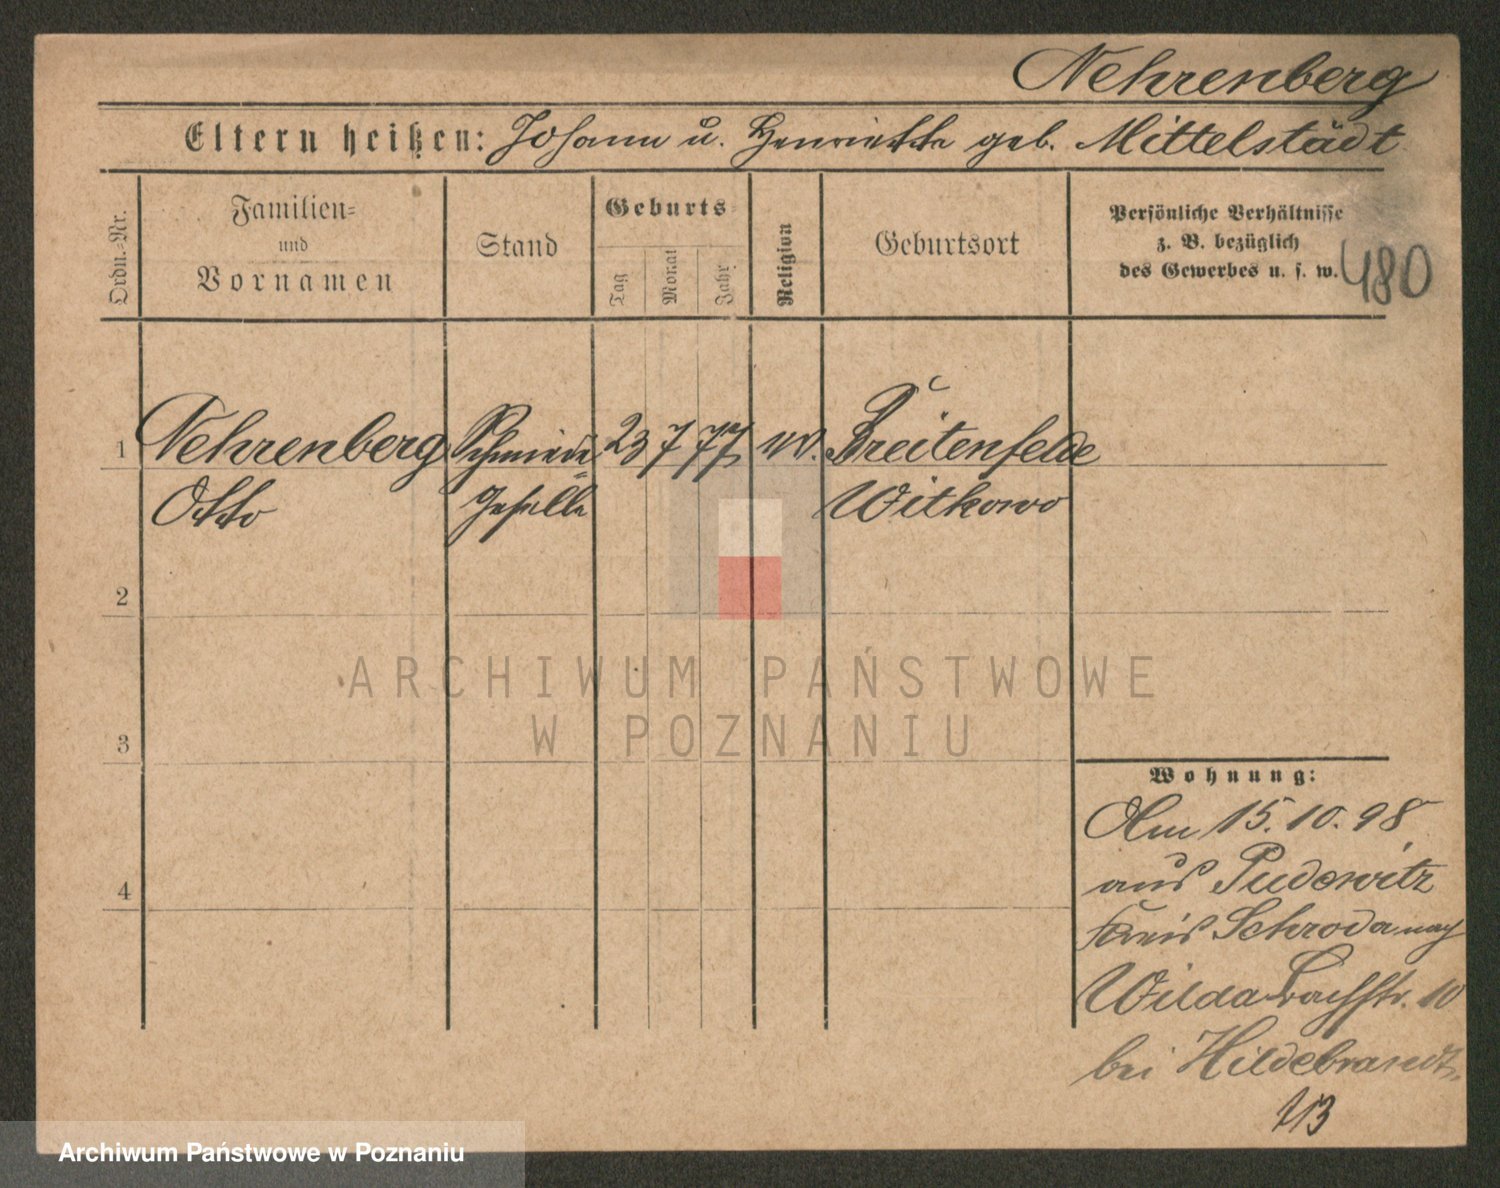 Nehrenberg
Eltern heißen: Johann u. Henriette geb. Mittelstädt
Ordn.=Nr.
Familien=
und
Vornamen
Stand
Geburts
Tag
Monat
Jahr
Religion
Geburtsort
Persönliche Verhältnisse
z. B. bezüglich
des Gewerbes u. s. w.
480
1 Nehrenberg Schmiede 23 7 77 Breitenfelde
Otto geselle Witkowo
2
3
4
Wohnung:
Am 15.10.98
aus Pudewitz
Kreis Schroda nach
Wilda Bachstr. 10
bei Hildebrandt.
ARCHIWUM PAŃSTWOWE
W POZNANIU
Archiwum Państwowe w Poznaniu